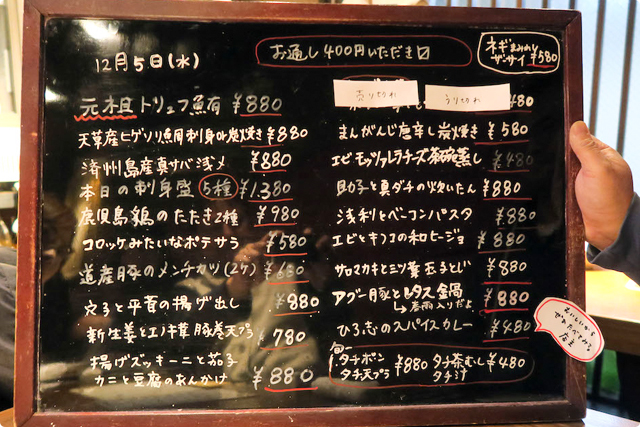 12月5日(水)
お通し400円いただき〼
ネギまみれ
ザーサイ ¥580
元祖トリュフ魚有 ¥880
天草産ヒゲソリ魚用刺身or炭焼き ¥880
済州島産真サバ〆 ¥880
本日の刺身盛 5種 ¥1,380
鹿児島鶏のたたき2種 ¥980
コロッケみたいなポテサラ ¥580
道産豚のメンチカツ(2ケ) ¥680
穴子と平茸の揚げ出し ¥880
新生姜とエノキ茸豚巻天プラ ¥780
揚げズッキーニと茄子
カニと豆腐のあんかけ ¥880
売り切れ
うり切れ
480
まんがんじ唐辛し炭焼き ¥580
エビモッツァレラチーズ茶碗蒸し ¥480
助子と真ダチの炊いたん ¥880
浅利とベーコンパスタ ¥880
エビとキノコの和ヒージョ ¥880
サロマカキと三ツ葉玉子とじ ¥880
アグー豚とレタス鍋 ¥880
→春雨入りだよ
ひろ志のスパイスカレー ¥480
旬
タチポン
タチ天プラ ¥880
タチ茶むし
タチ汁 ¥480
店主